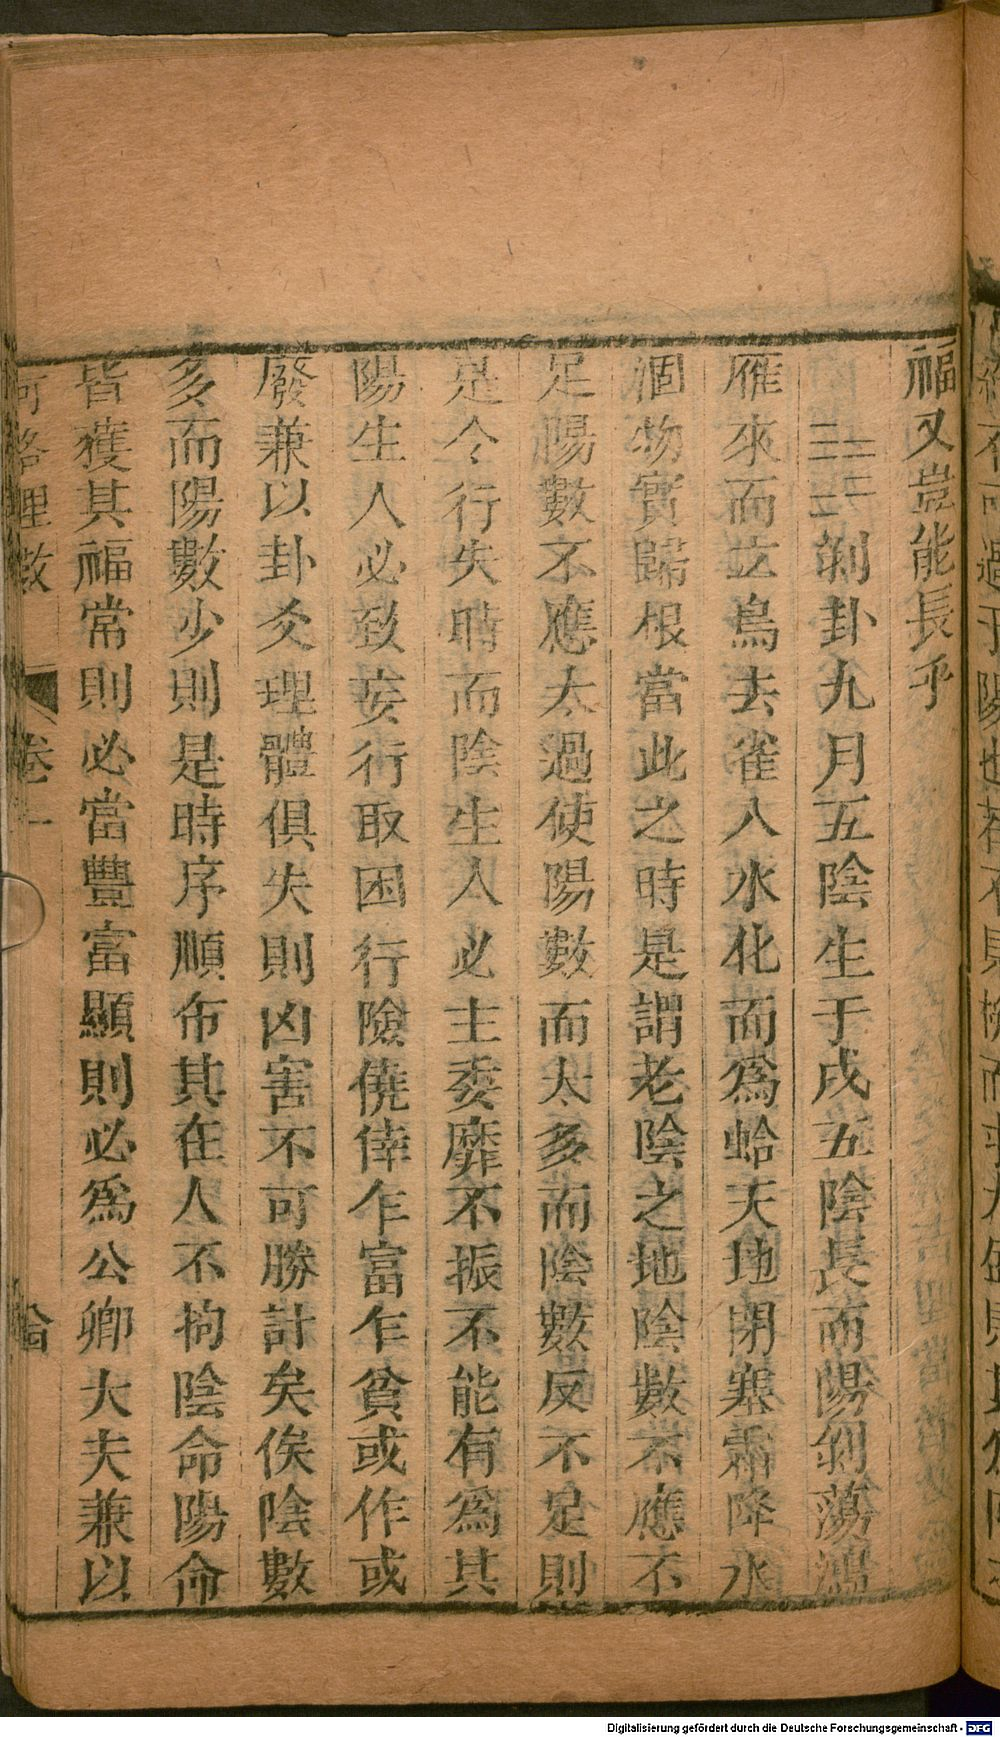 福又豈能長乎
剝卦九月五陰生于戌五陰長而陽剝蕩鴻
雁來而玄鳥去雀入水化而爲蛤天地閉塞霜降水
涸物實歸根當此之時是謂老陰之地陰數不應不
足陽數不應太過使陽數而太多而陰數反不足則
是令行失時而陰生人必主委靡不振不能有爲其
陽生人必致妄行取困行險僥倖乍富乍貧或作或
廢兼以卦爻理體俱失則凶害不可勝計矣俟陰數
多而陽數少則是時序順布其在人不拘陰命陽命
皆獲其福常則必當豐富顯則必爲公卿大夫兼以
河洛理數 卷一
Digitalisierung gefördert durch die Deutsche Forschungsgemeinschaft - DFG